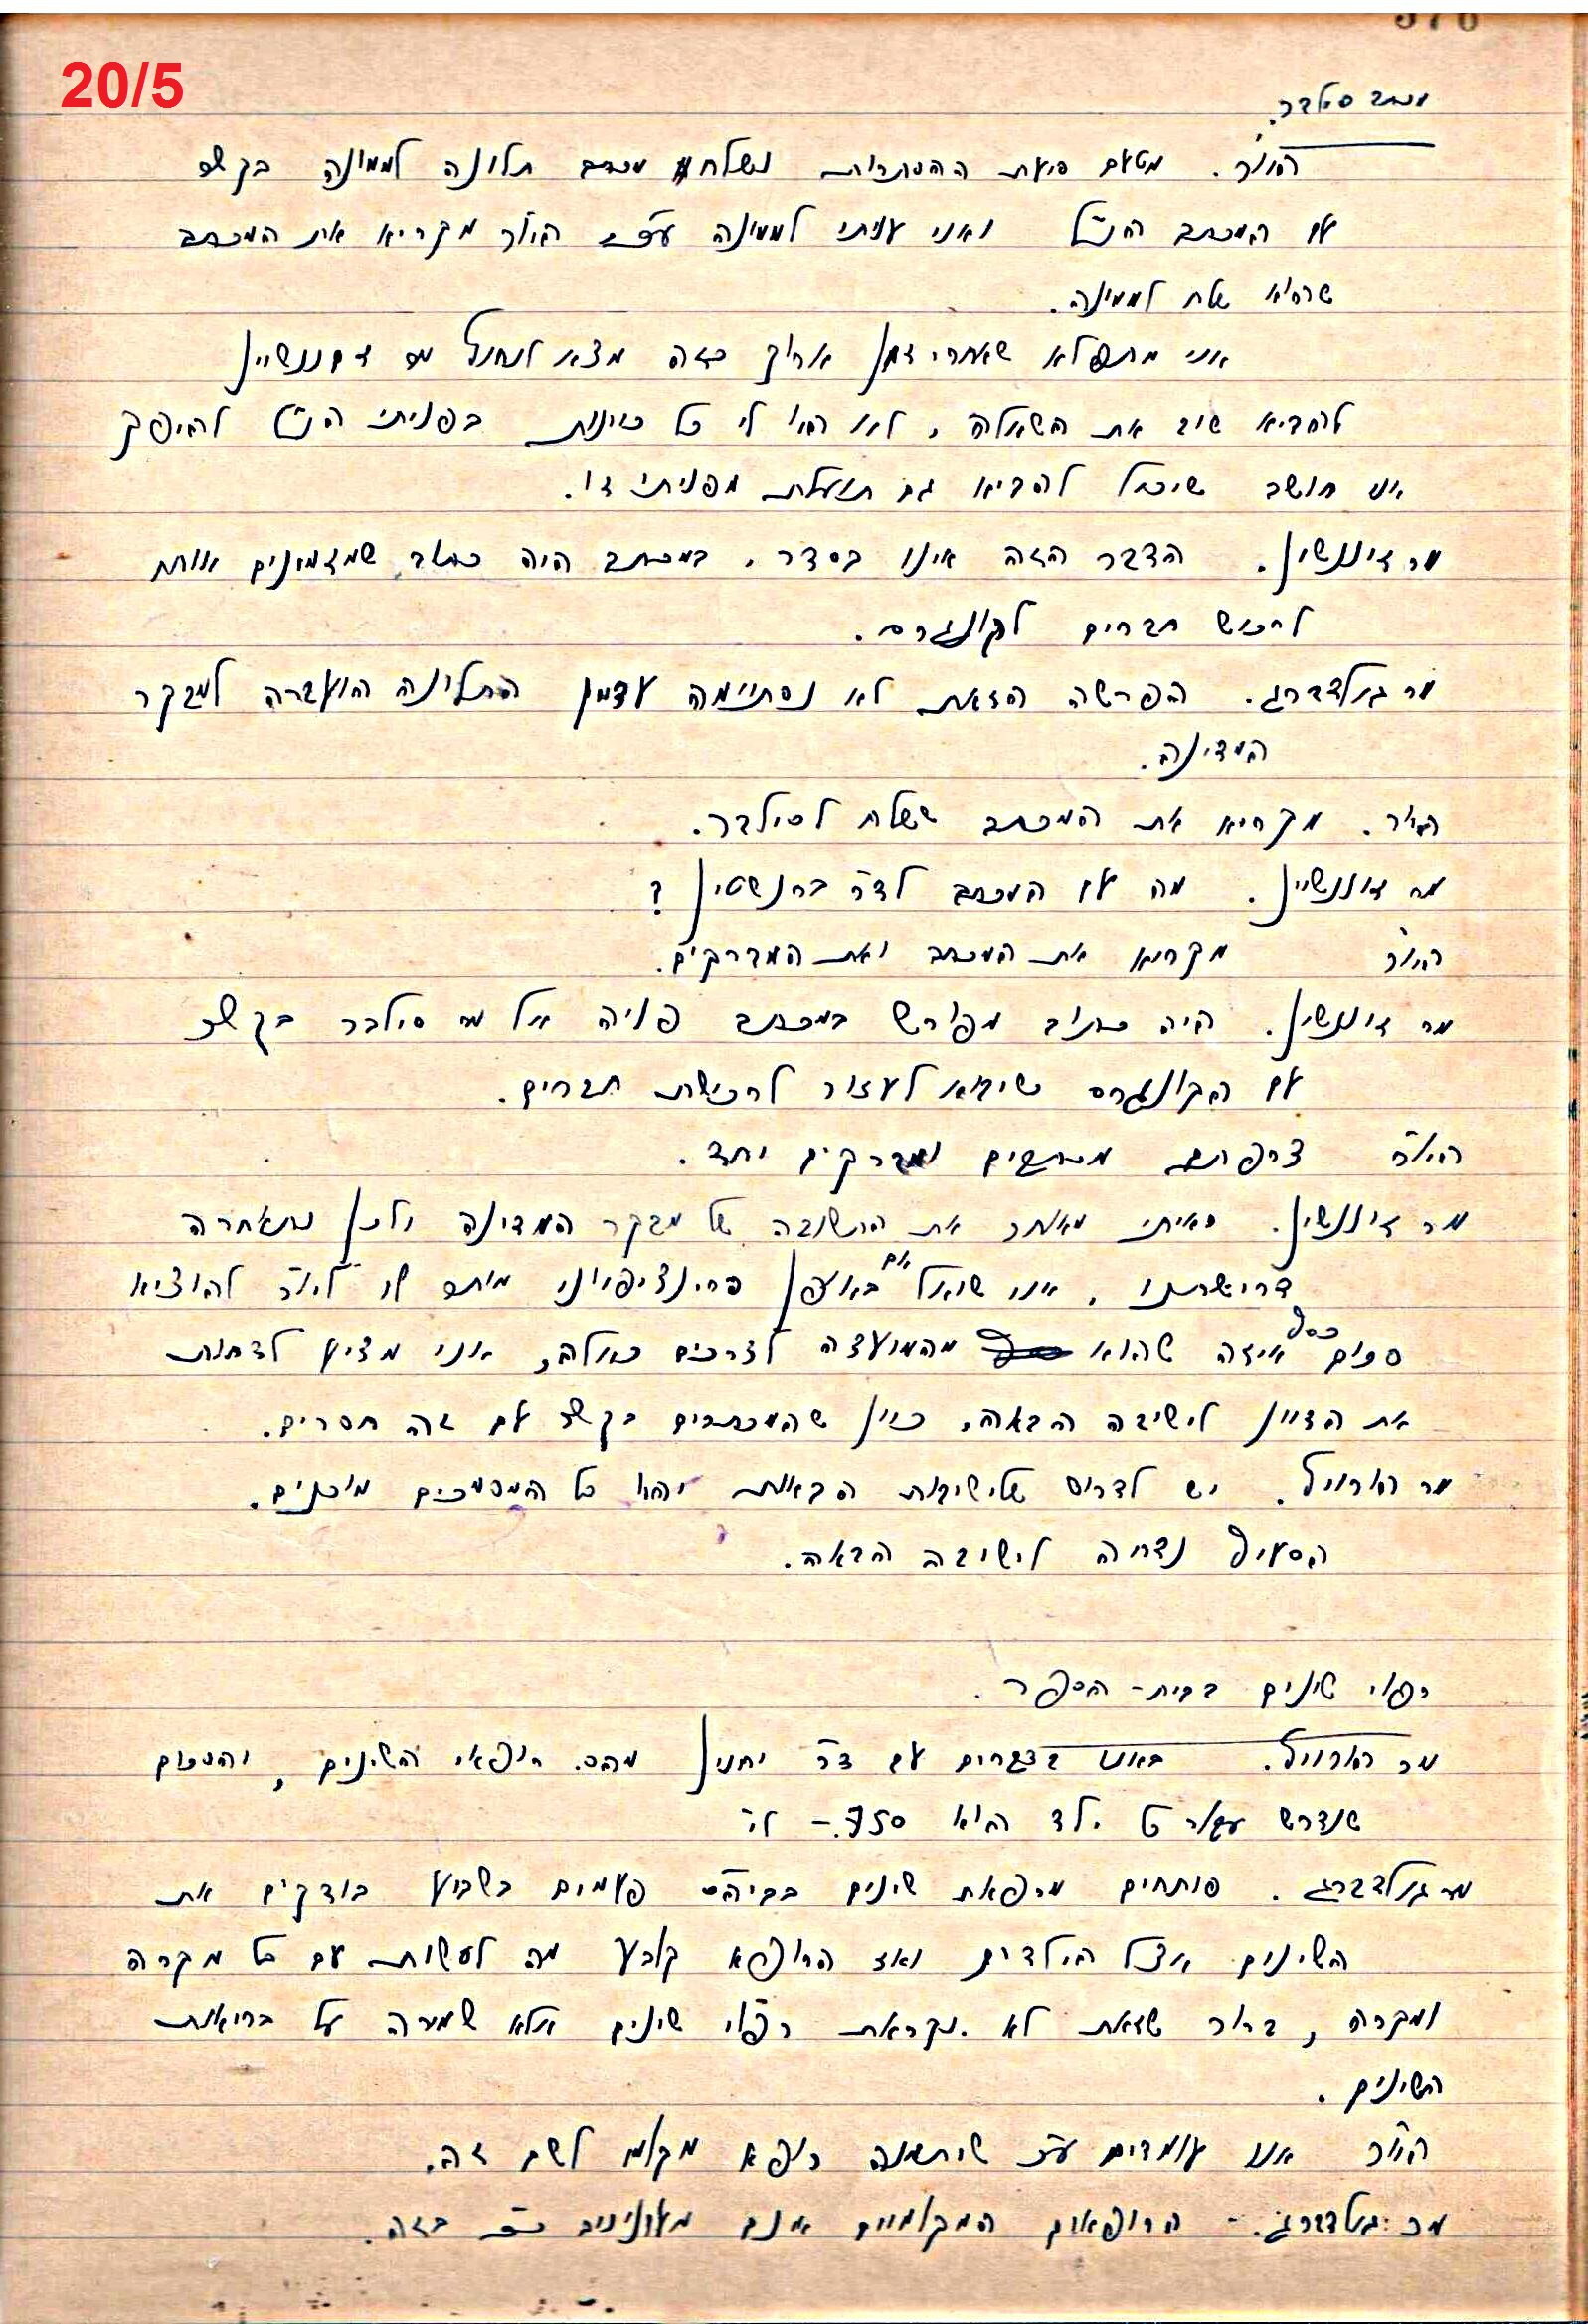 376
20/5
מכתב סילבר.
היו"ר. מטעם סיעת ההסתדרות נשלח מכתב תלונה לממונה בקשר
עם המכתב הנ"ל ואני עניתי לממונה ע"כ היו"ר מקריא את המכתב
שהוא שלח לממונה.
אני מתפלא שאחרי זמן ארוך כזה מצא לנחוץ מר זיננשיין
להביא שוב את השאלה, לא היו לי כל כוונות בפניתי הנ"ל להיפך
אני חושב שיכול להביא גם תועלת מפניתי זו.
מר זיננשיין. הדבר הזה אינו בסדר. במכתב היה כתוב שמזמינים אותו
לרכוש חברים לקונגרס.
מר גולדברג. הפרשה הזאת לא נסתיימה עדיין התלונה הועברה למבקר
המדינה.
היו"ר. מקריא את המכתב ששלח לסילבר.
מר זיננשיין. מה עם המכתב לד"ר ברנשטיין?
היו"ר מקריא את המכתב ואת המברקים.
מר זיננשיין. היה כתוב מפורש במכתב פניה אל מר סילבר בקשר
עם הקונגרס שיבוא לעזור לרכישת חברים.
היו"ר צרפתם מכתבים ומברקים יחד.
מר זיננשיין. ראיתי מאוחר את התשובה של מבקר המדינה ולכן נתאחרה
דרישתנו, אני שואל אם באופן פרינציפיוני מותר לו ליו"ר להוציא
סכום כסף איזה שהוא מהמועצה לצרכים כאלה, אני מציע לדחות
את הדיון לישיבה הבאה, כיון שהמכתבים בקשר עם זה חסרים.
מר הורוויץ. יש לדרוש שלישיבות הבאות יהיו כל המסמכים מוכנים.
הסעיף נדחה לישיבה הבאה.
רפוי שינים בבית-הספר.
מר הורוויץ. באנו בדברים עם ד"ר יחנין מהס. רופאי השינים, והסכום
שנדרש עבור כל ילד הוא 7.50 - ל"י
מר גולדברג. פותחים מרפאת שינים בביה"ס פעמים בשבוע בודקים את
השינים אצל הילדים ואז הרופא קובע מה לעשות עם כל מקרה
ומקרה, ברור שזאת לא נקראת רפוי שינים אלא שמירה על בריאות
השינים.
היו"ר אנו עומדים ע"כ שיתמנה רופא מקומי לשם זה.
מר גולדברג. - הרופאים המקומיים אינם מעונינים כ"כ בזה.